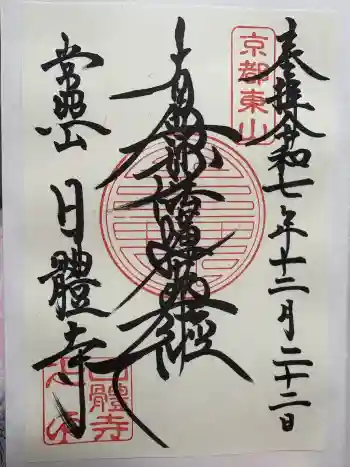 奉拝 令和七年十二月二十二日
京都東山
南無妙法蓮華経
常照山
日體寺
日體寺